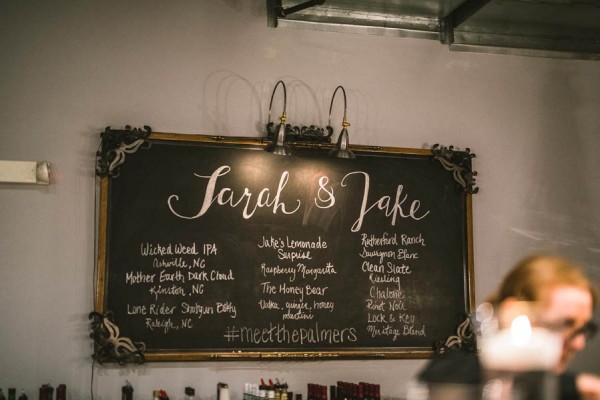 Sarah & Jake
Wicked Weed IPA
Asheville, NC
Mother Earth Dark Cloud
Kinston, NC
Lone Rider Shotgun Betty
Raleigh, NC
Jake's Lemonade
Surprise
Raspberry Margarita
The Honey Bear
Vodka, ginger, honey
martini
Rutherford Ranch
Sauvignon Blanc
Clean Slate
Riesling
Chalone
Pinot Noir
Lock & Key
Meritage Blend
#meetthepalmers